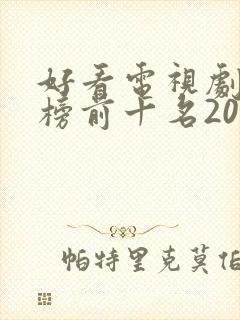 好看電視劇
榜前十名20
帕特里克莫伯